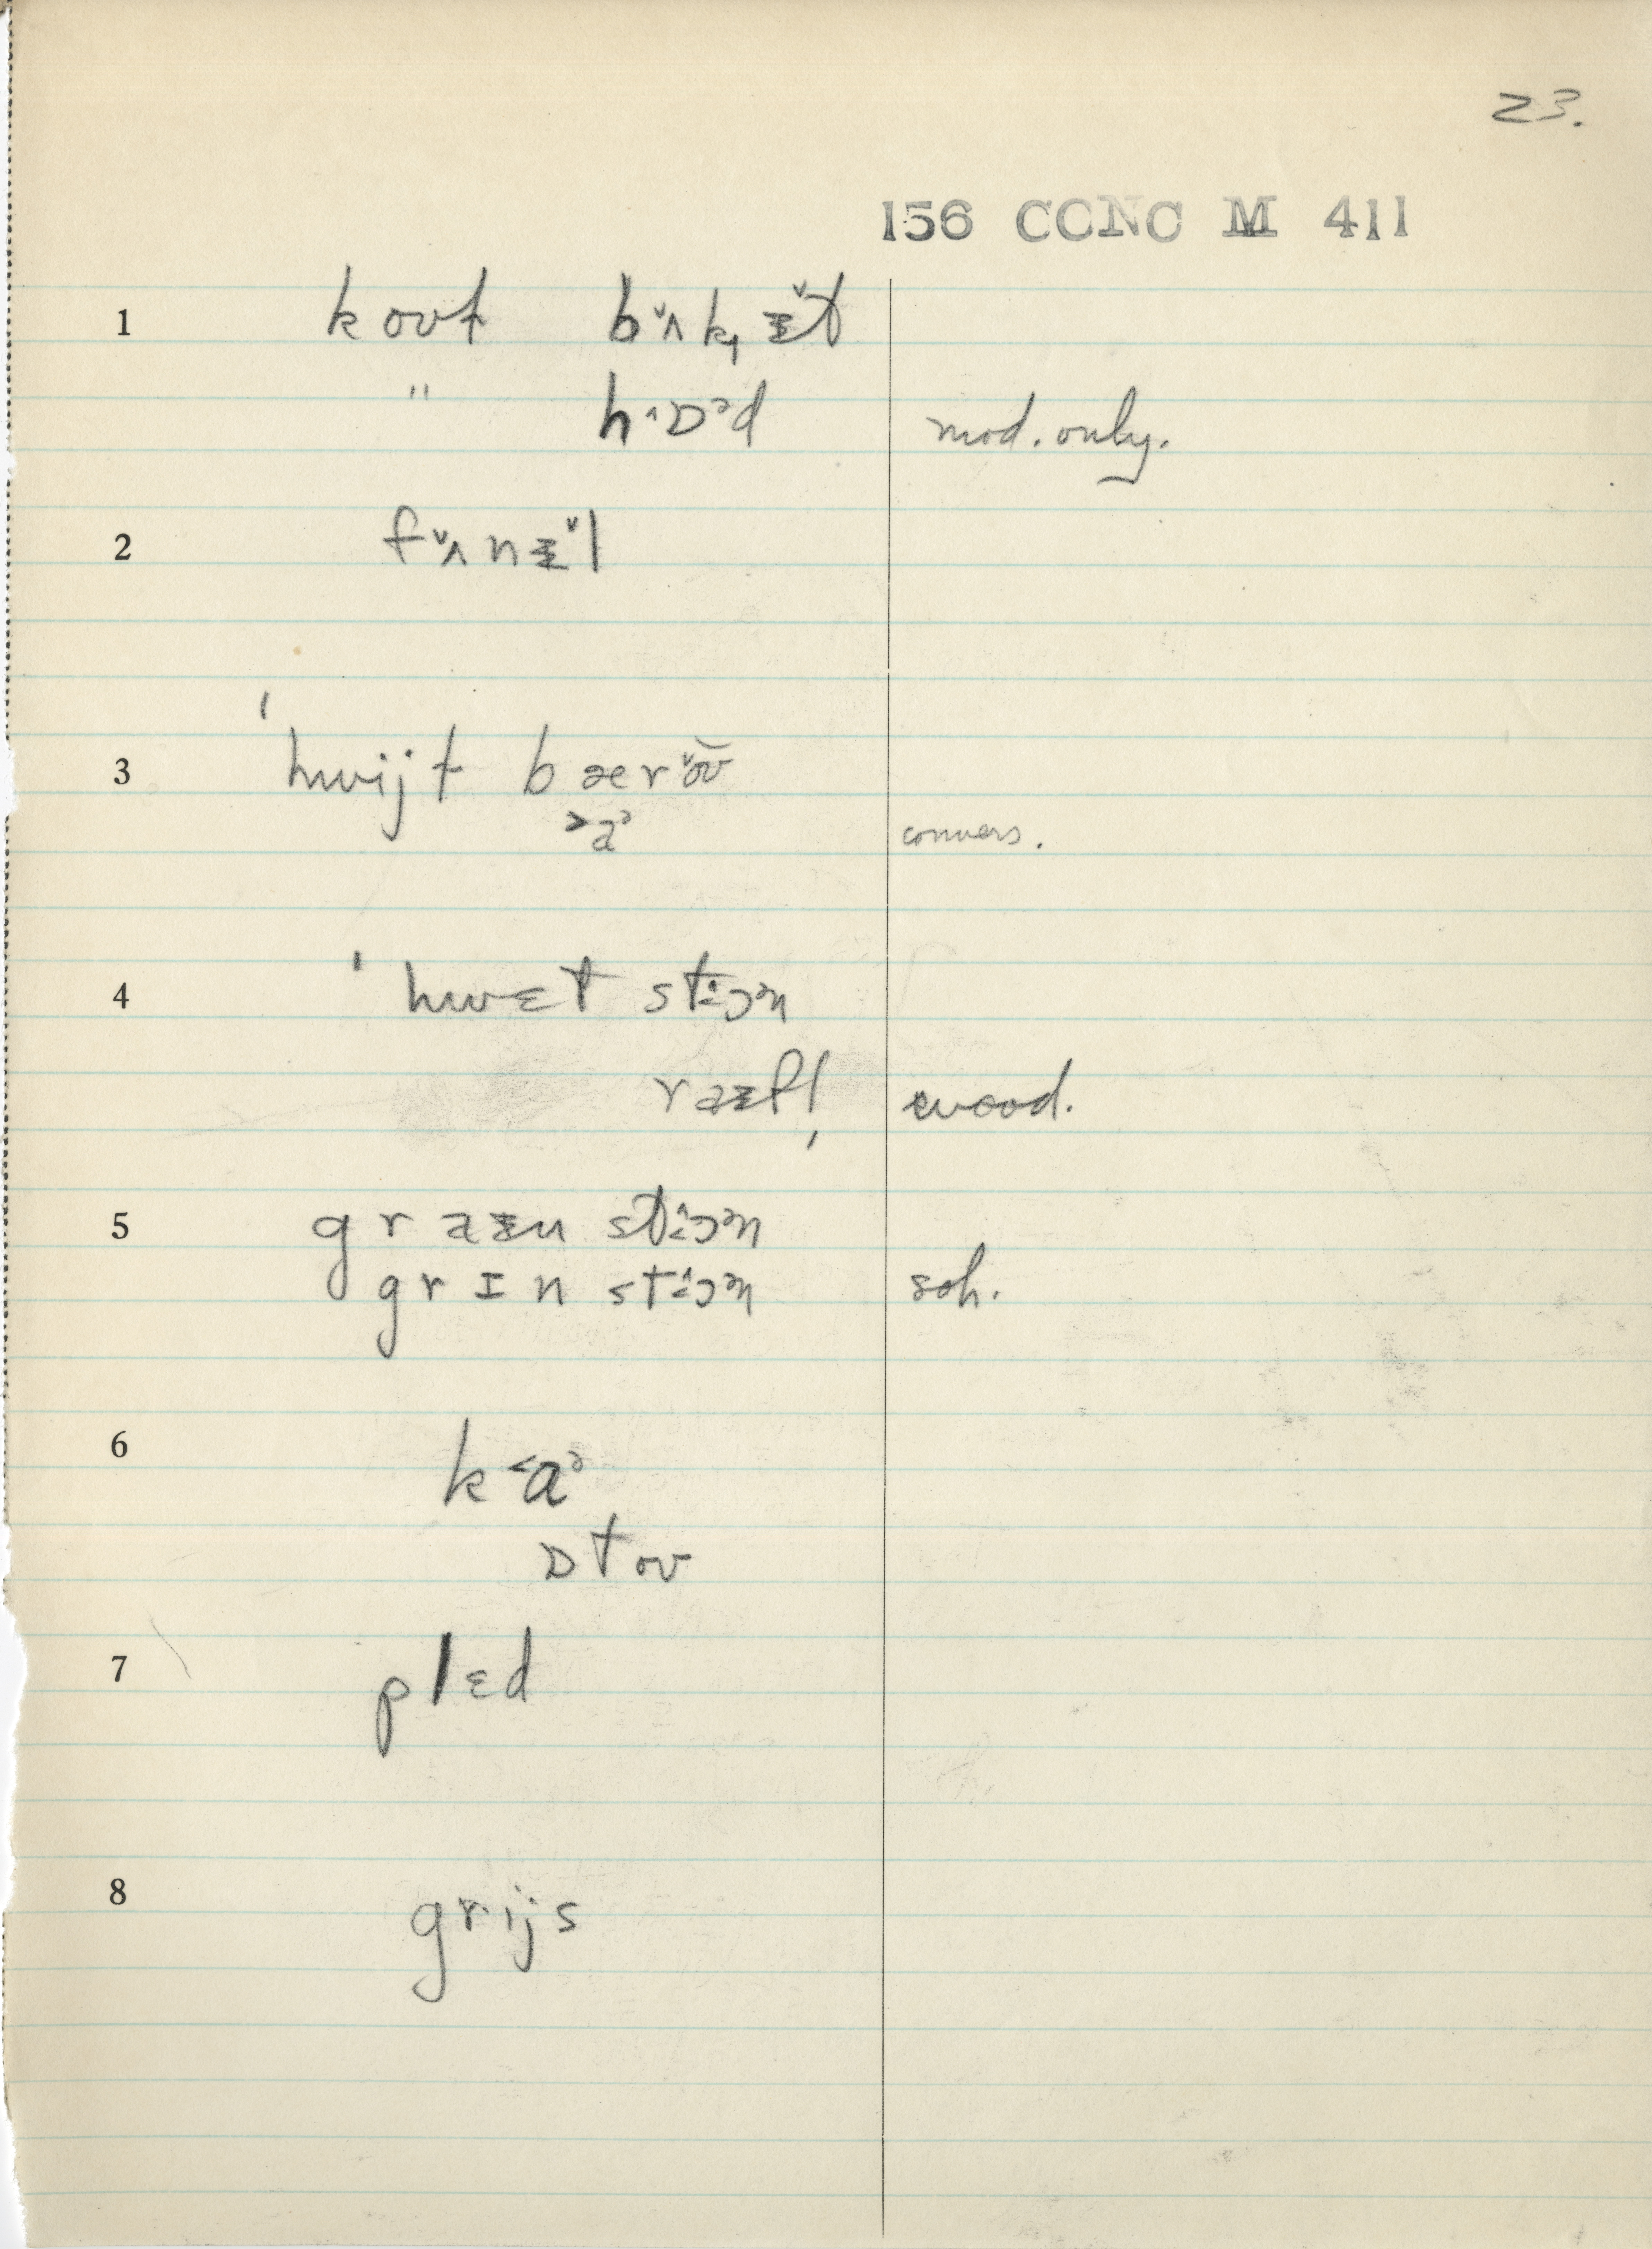 23.
156 CCNC M 411
1 koʊt bˇʌkɪ̵ˇt
" hˑɒᵊd mod. only.
2 fˇʌnɪ̵ˇl
3 ˈhwijt bærˇoʊ̆
˃aᵊ convers.
4 ˈhwɛt stˑɔᵊn
raɪ̵f! wood.
5 graɪ̵n stˑɔᵊn
grɪn stˑɔᵊn soh.
6 k˂aᵊ
ɒtoʊ
7 plɛd
8 grijs